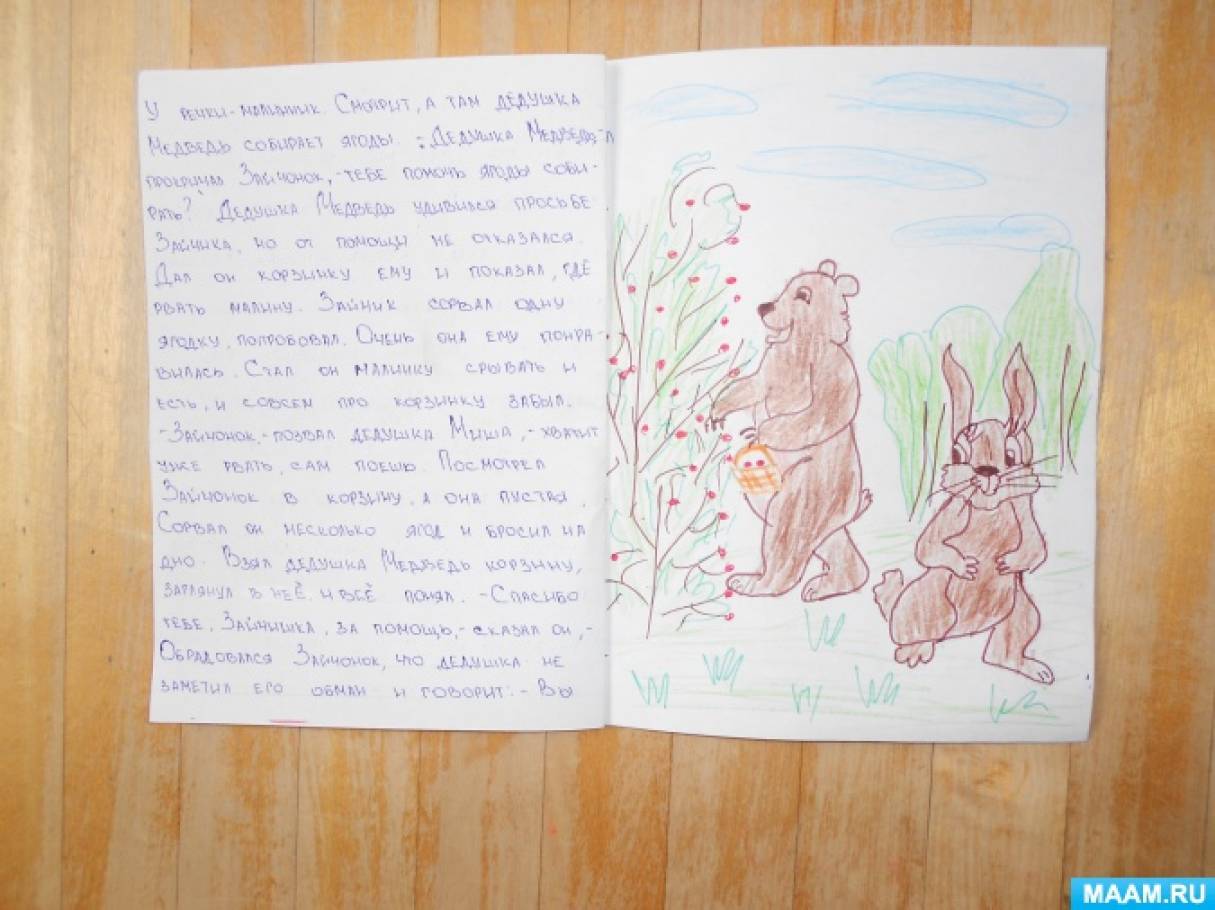 У речки-малинник. Смотрит, а там дедушка
Медведь собирает ягоды. -Дедушка Медведь,-
прокричал Зайчонок,-тебе помочь ягоды соби-
рать? Дедушка Медведь удивился просьбе
Зайчика, но от помощи не отказался.
Дал он корзинку ему и показал, где
рвать малину. Зайчик сорвал одну
ягодку, попробовал. Очень она ему понра-
вилась. Стал он малинку срывать и
есть, и совсем про корзинку забыл.
-Зайчонок,-позвал дедушка Миша,-хватит
уже рвать, сам поешь. Посмотрел
Зайчонок в корзину, а она пустая.
Сорвал он несколько ягод и бросил на
дно. Взял дедушка Медведь корзину,
заглянул в неё и всё понял. -Спасибо
тебе, Зайчишка, за помощь,-сказал он,-
Обрадовался Зайчонок, что дедушка не
заметил его обман и говорит:-Вы
MAAM.RU